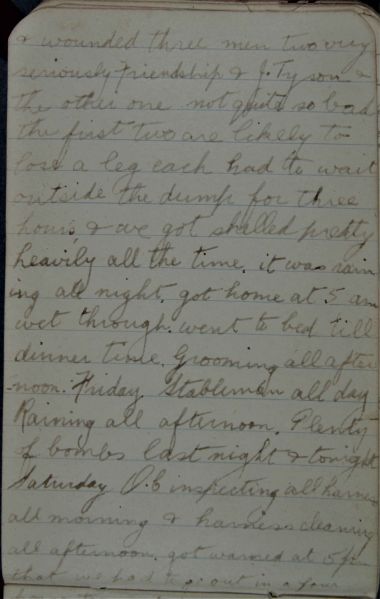 & wounded three men two very
seriously Friendship & J. Tyson &
the other one not quite so bad
the first two are likely to
lose a leg each had to wait
outside the dump for three
hours, & we got shelled pretty
heavily all the time. it was rain
ing all night. got home at 5 am
wet through. went to bed till
dinner time. Grooming all after
-noon. Friday. Stableman all day
Raining all afternoon. Plenty
of bombs last night & tonight
Saturday O.C inspecting all harness
all morning & harness cleaning
all afternoon. got warned at 5 pm
that we had to go out in a four